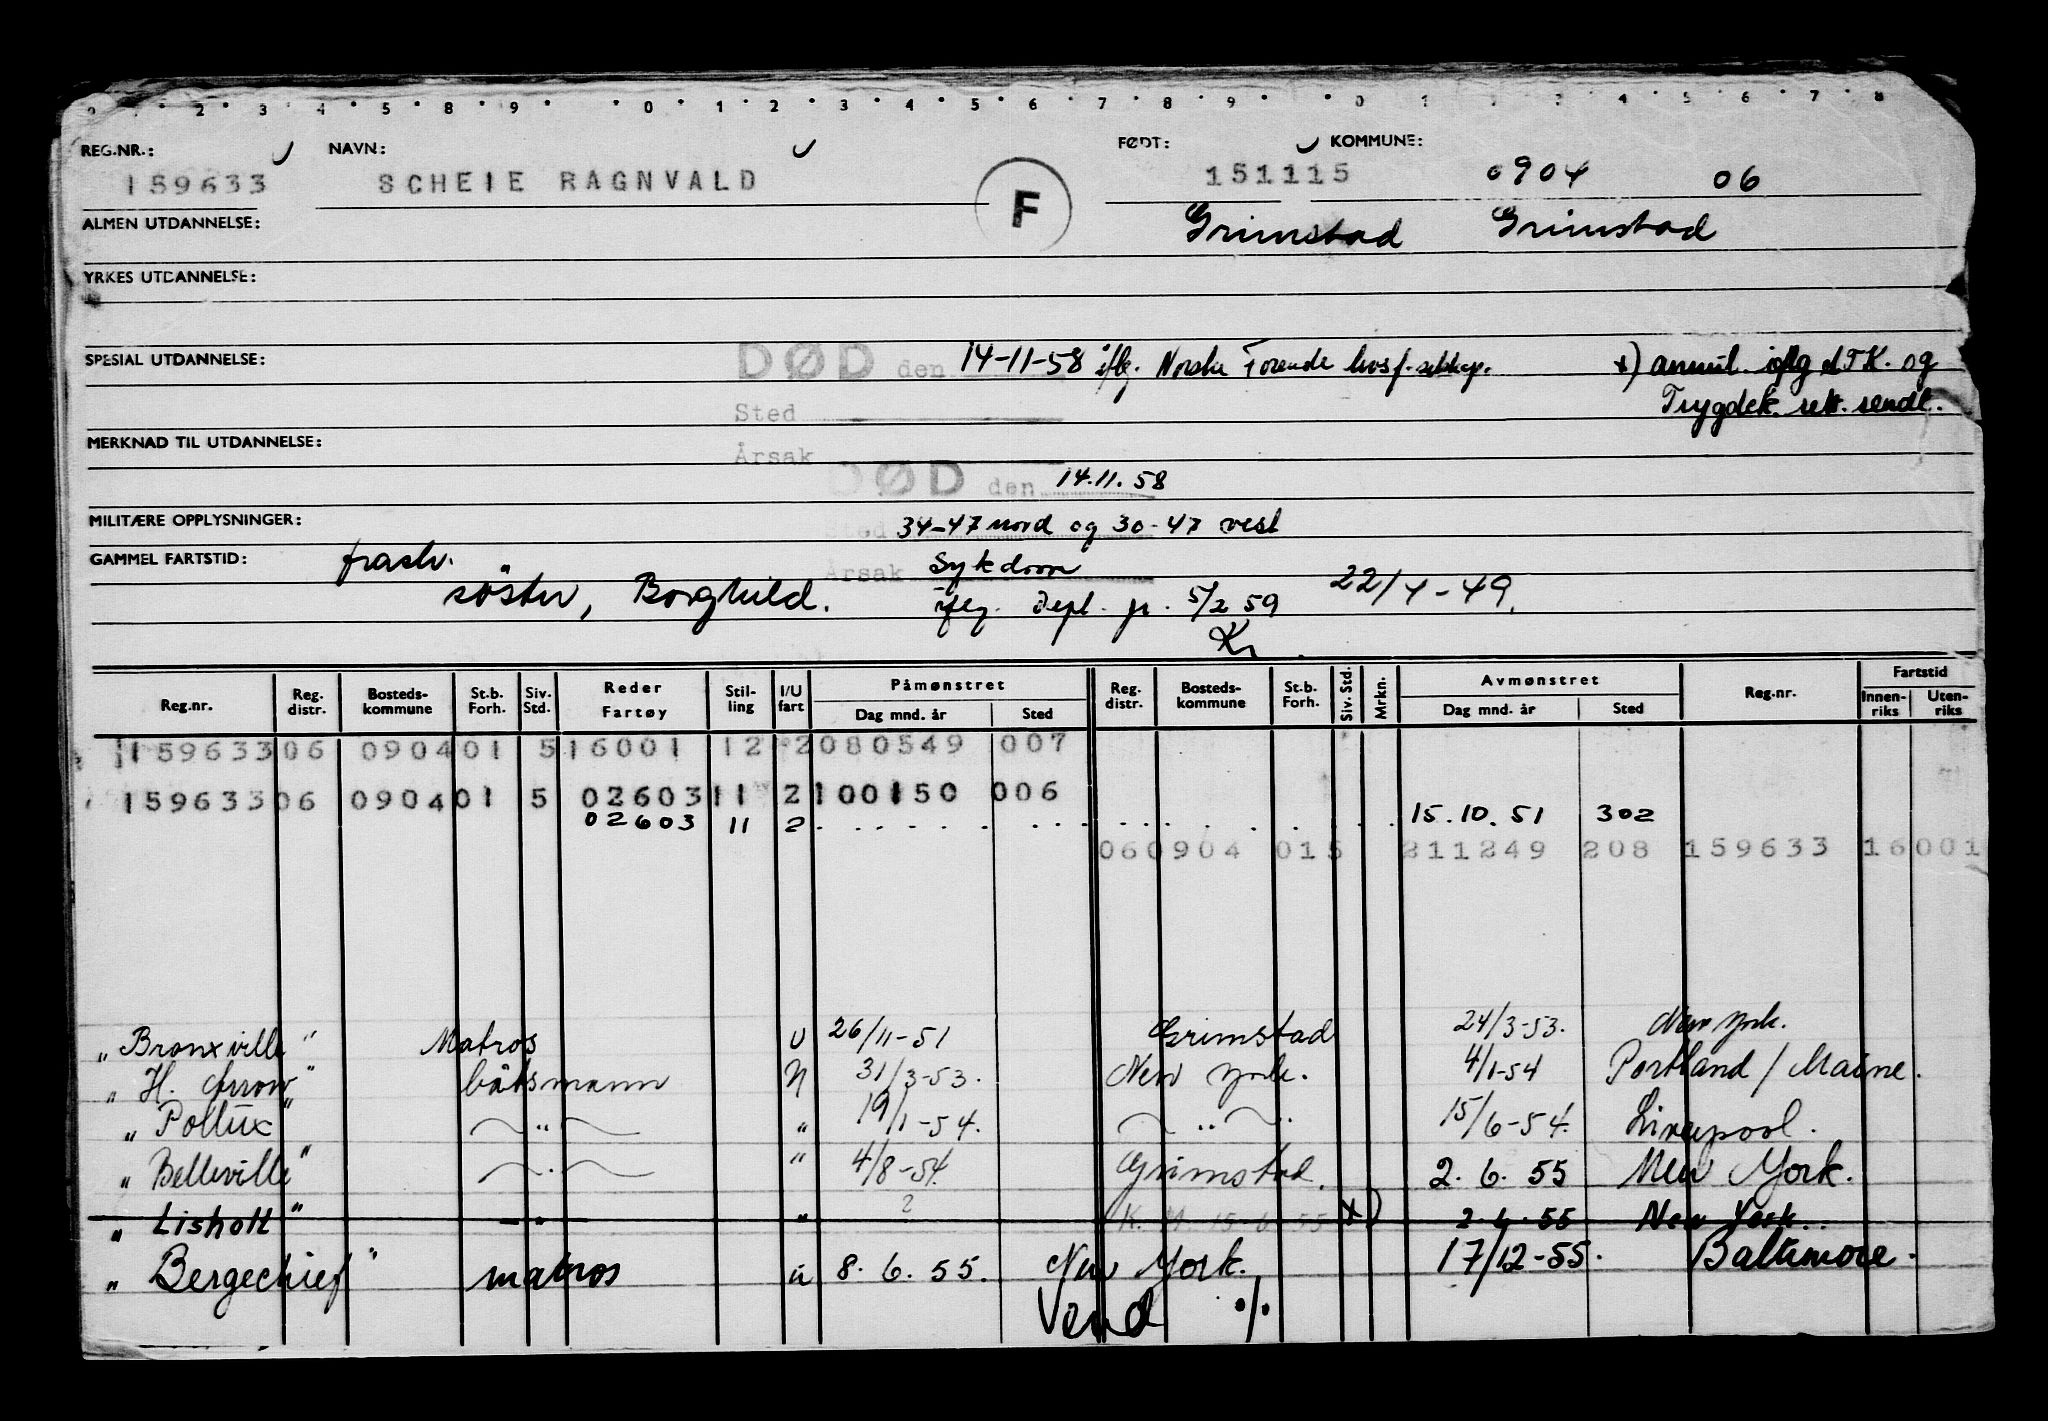 REG.NR.: NAVN: FØDT: KOMMUNE:
159633 SCHEIE RAGNVALD F 151115 0904 06
ALMEN UTDANNELSE: Grimstad Grimstad
YRKES UTDANNELSE:
SPESIAL UTDANNELSE: DØD den 14-11-58 iflg. Norske Forende livsf.selskap. x) annul. iflg dTK. og
Sted Trygdek. rett. sendt.
MERKNAD TIL UTDANNELSE: Årsak
DØD den 14.11.58
MILITÆRE OPPLYSNINGER: Sted 34-47 nord og 30-47 vest
GAMMEL FARTSTID: frask. Årsak Sykdom
søster, Borghild. iflg. Dept. 5/2 59 22/4-49.
Kr
Reg.nr. Reg. distr. Bosteds-kommune St.b. Forh. Siv. Std. Reder Fartøy Stil-ling I/U fart Påmønstret Dag mnd. år Sted Reg. distr. Bosteds-kommune St.b. Forh. Siv. Std. Mrkn. Avmønstret Dag mnd. år Sted Reg.nr. Fartstid Innen-riks Uten-riks
159633 06 0904 01 5 16001 12 2 080549 007
159633 06 0904 01 5 02603 11 2 100150 006
02603 11 2 15.10.51 302
06 0904 01 5 211249 208 159633 16001
"Bronxville" Matros U 26/11-51 Grimstad 24/3-53. New York.
"H. Arrow" båtsmann U 31/3-53. New York. 4/1-54 Portland / Maine.
"Pollux" " " 19/1-54. " 15/6-54. Liverpool.
"Belleville" " " 4/8-54. Grimstad. 2.6.55 New York.
"Lisholt" " " ? K. M 15-6-55 x) 2.6.55 New York.
"Bergechief" matros u 8.6.55. New York. 17/12-55. Baltimore.
Vend ./.